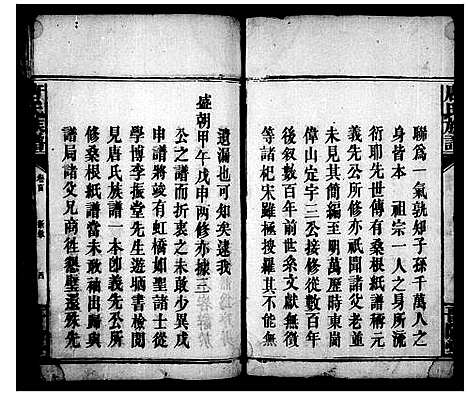 聯為一氣孰知子孫千萬人之
身皆本　祖宗一人之身所流
衍耶先世傳有桑根紙譜稱元
義先公所修亦祇聞諸父老周
未見其簡編至明萬歷時東閣
偉山定宇三公接修從數百年
後叙數百年前世系文獻無徵
等諸杞宋雖極搜羅不能無
遺漏也可知矣逮我
盛朝甲午戊申兩修亦據三
公之譜而折衷之未敢少異戌
申譜將竣有虹橋如聖諸士從
學博李振堂先生遊晒書檢閱
見唐氏族譜一本卽義先公所
修桑根紙譜當未敢袖出歸與
譜局諸父兄商往懇壁還殊先
唐氏族譜
卷首